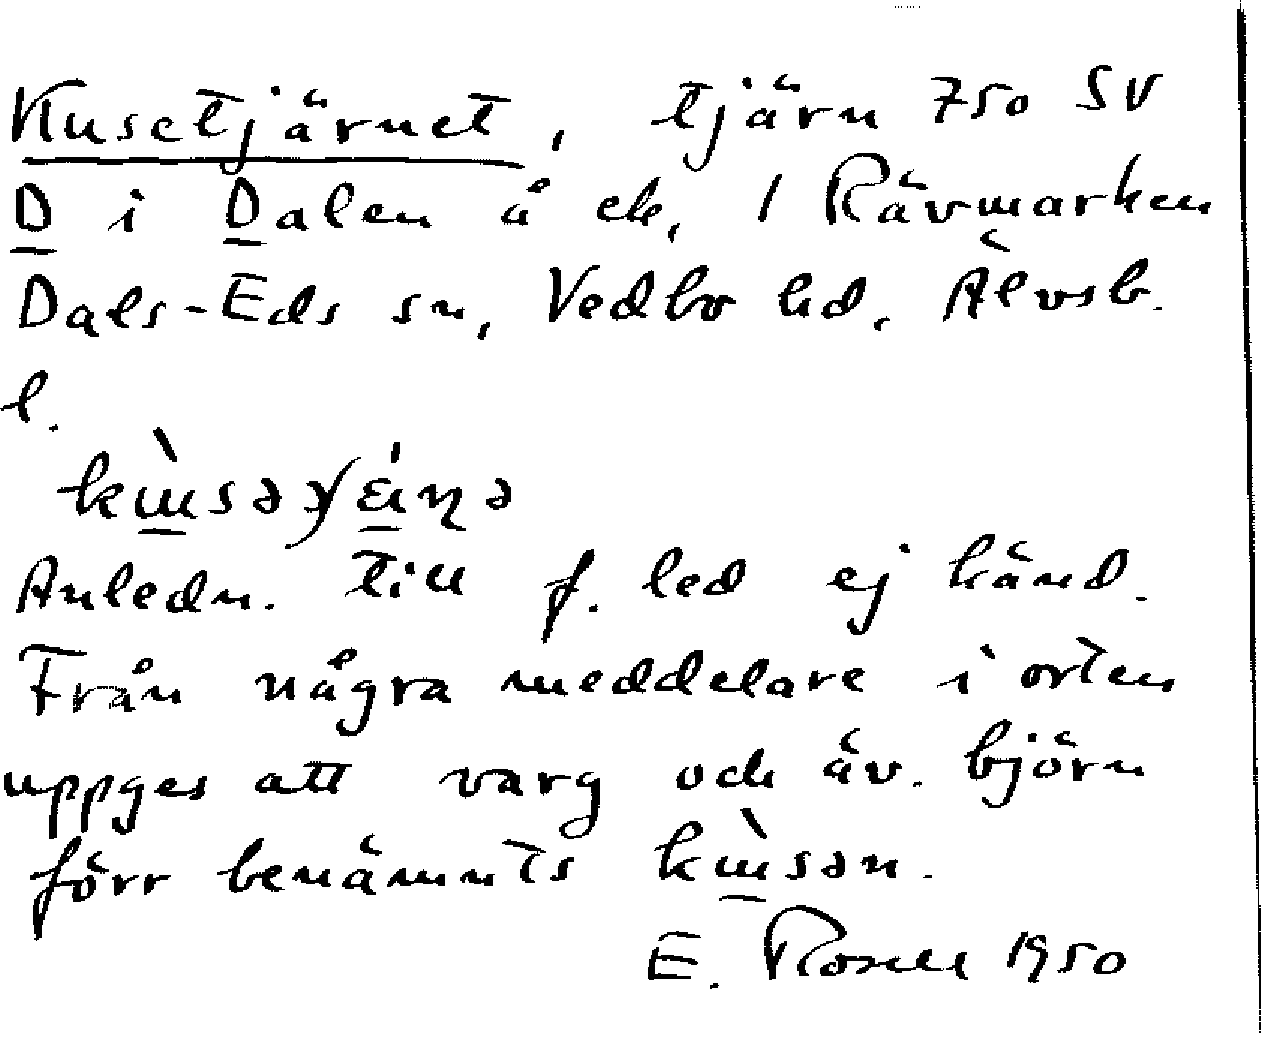 Kusetjärnet, tjärn 750 SV
D i Dalen å ek, 1 Rävmarken
Dals-Eds sn, Vedbo hd, Älvsb.
l.
Anledn. till f. led ej känd.
Från några meddelare i orten
uppges att varg och äv. björn
förr benämnts kɯ̀sən.
E. Rosell 1950